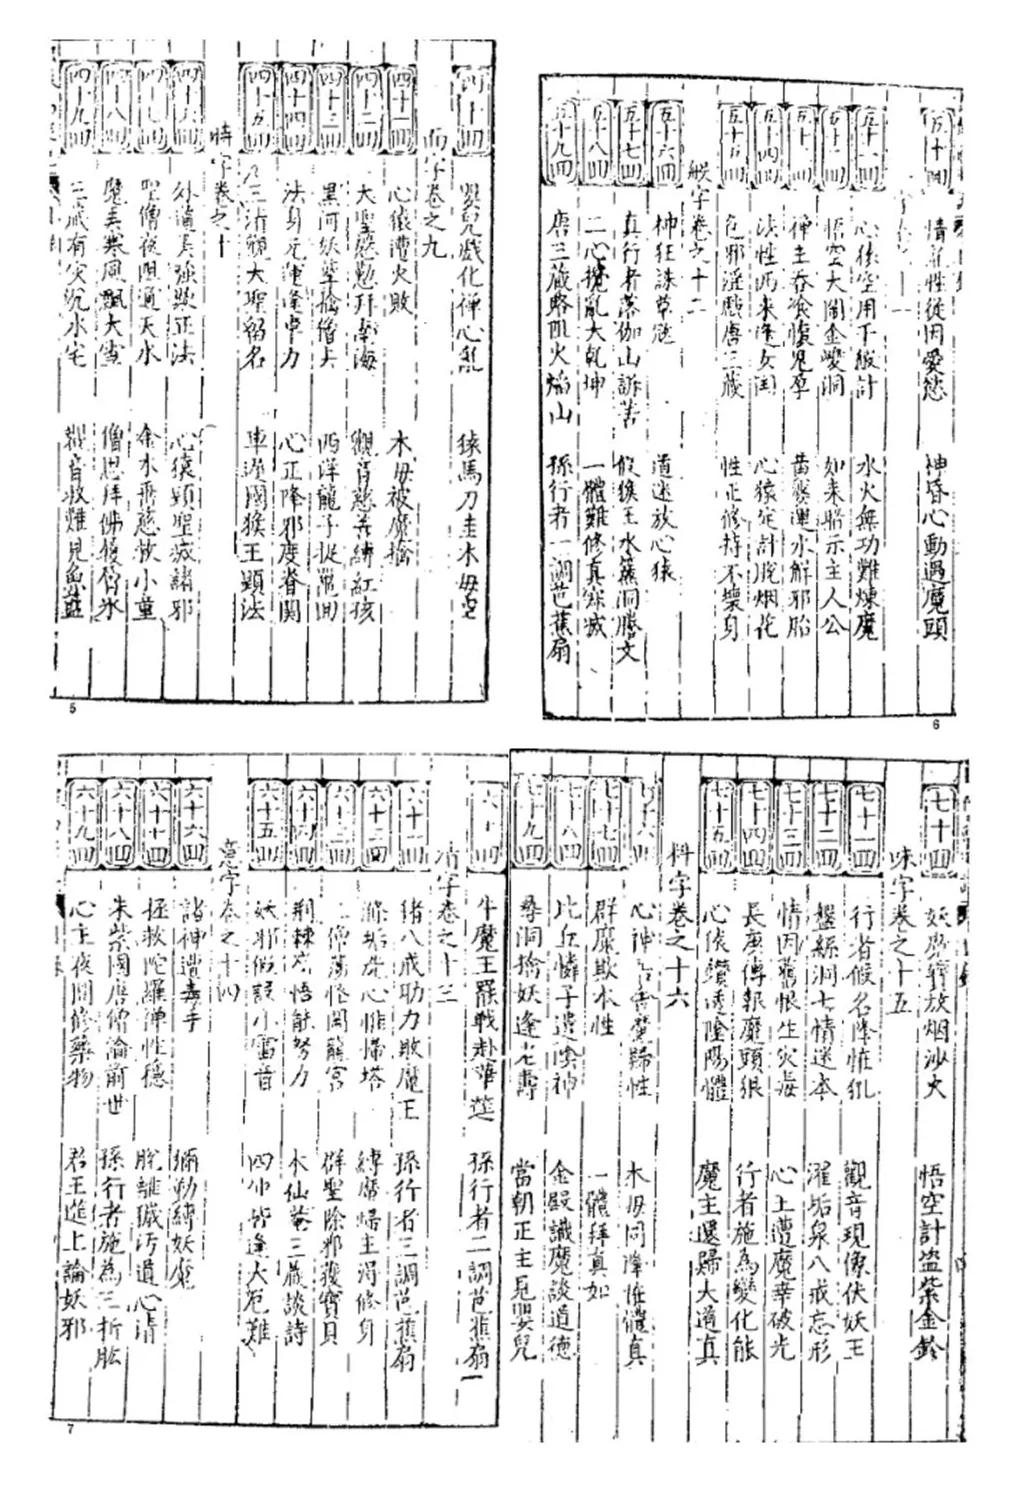 四十回 嬰兒戲化禪心亂 猿馬刀圭木母空
而字卷之九
四十一回 心猿遭火敗 木母被魔擒
四十二回 大聖慇懃拜南海 觀音慈善縛紅孩
四十三回 黑河妖孽擒僧去 西洋龍子捉鼉回
四十四回 法身元運逢車力 心正降邪度脊関
四十五回 三清觀大聖留名 車遲國猴王顕法
時字卷之十
四十六回 外道弄強欺正法 心猿顕聖滅諸邪
四十七回 聖僧夜阻通天水 金木垂慈救小童
四十八回 魔弄寒風飄大雪 僧思拜佛履層氷
四十九回 三藏有灾沉水宅 觀音救難見魚籃
五十回 情亂性從因愛慾 神昏心動遇魔頭
五十一回 心猿空用千般計 水火無功難煉魔
五十二回 悟空大鬧金㠉洞 如来暗示主人公
五十三回 禪主吞飡懷鬼孕 黃婆運水解邪胎
五十四回 法性西来逢女國 心猿定計脫烟花
五十五回 色邪淫戲唐三藏 性正修持不壞身
字卷之十二
五十六回 神狂誅草寇 道迷放心猿
五十七回 真行者落伽山訴苦 假猴王水簾洞謄文
五十八回 二心攪亂大乾坤 一體難修真寂滅
五十九回 唐三藏路阻火焰山 孫行者一調芭蕉扇
六十回 牛魔王罷戰赴華筵 孫行者二調芭蕉扇
清字卷之十三
六十一回 猪八戒助力敗魔王 孫行者三調芭蕉扇
六十二回 滌垢洗心惟掃塔 縛魔歸主渇修身
六十三回 二僧蕩怪閙龍宮 群聖除邪獲寶貝
六十四回 荊棘悟能努力 木仙菴三藏談詩
六十五回 妖邪假設小雷音 四衆皆逢大厄難
意字卷之十四
六十六回 諸神遭毒手 彌勒縛妖魔
六十七回 拯救陀羅禪性穩 脫離穢污道心清
六十八回 朱紫國唐僧論前世 孫行者施為三折肱
六十九回 心主夜間修藥物 君王筵上論妖邪
七十回 妖魔寶放烟沙火 悟空計盜紫金鈴
味字卷之十五
七十一回 行者假名降怪犼 觀音現像伏妖王
七十二回 盤絲洞七情迷本 濯垢泉八戒忘形
七十三回 情因舊恨生灾毒 心主遭魔幸破光
七十四回 長庚傳報魔頭狠 行者施為變化能
七十五回 心猿鑽透陰陽體 魔主還歸大道真
料字卷之十六
七十六回 心神居舍魔歸性 木母同降怪體真
七十七回 群魔欺本性 一體拜真如
七十八回 比丘憐子遣陰神 金殿識魔談道德
七十九回 尋洞擒妖逢老壽 當朝正主見嬰兒
5
6
7